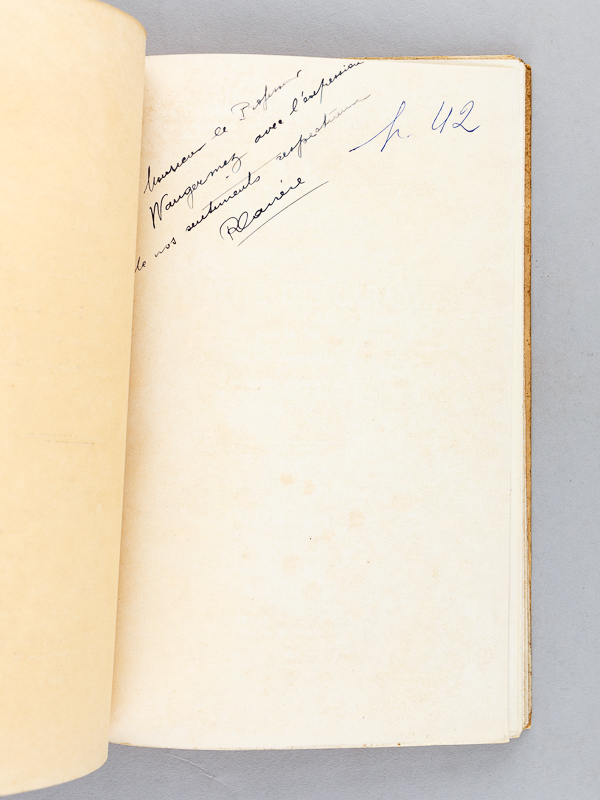 Monsieur le Professeur
Wangermez avec l'expression
de nos sentiments respectueux
p. 42